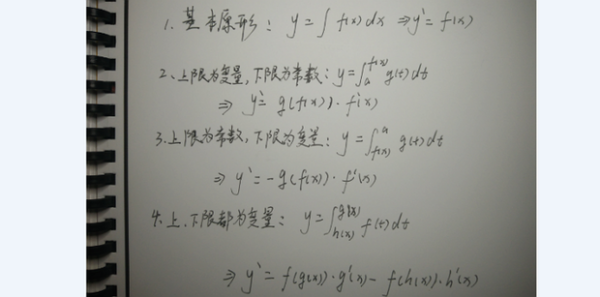 1. 基本原形: y = ∫ f(x) dx ⇒ y' = f(x)
2. 上限为变量, 下限为常数: y = ∫_a^{f(x)} g(t) dt
⇒ y' = g(f(x))·f'(x)
3. 上限为常数, 下限为变量: y = ∫_{f(x)}^a g(t) dt
⇒ y' = -g(f(x))·f'(x)
4. 上、下限都为变量: y = ∫_{h(x)}^{g(x)} f(t) dt
⇒ y' = f(g(x))·g'(x) - f(h(x))·h'(x)